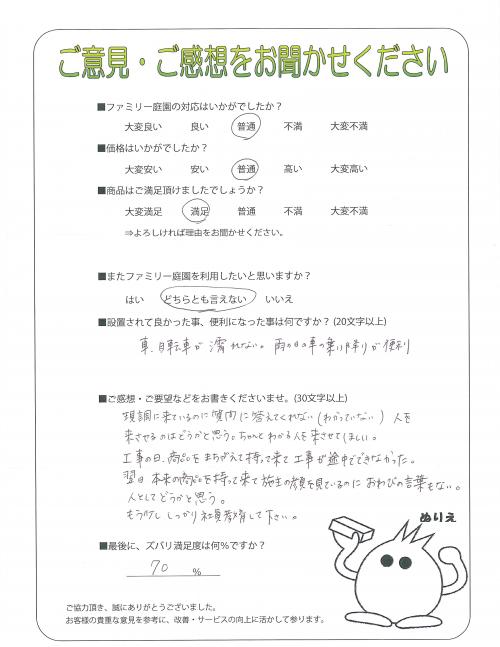 ご意見・ご感想をお聞かせください
■ファミリー庭園の対応はいかがでしたか？
大変良い 良い 普通 不満 大変不満
■価格はいかがでしたか？
大変安い 安い 普通 高い 大変高い
■商品はご満足頂けましたでしょうか？
大変満足 満足 普通 不満 大変不満
⇒よろしければ理由をお聞かせください。
■またファミリー庭園を利用したいと思いますか？
はい どちらとも言えない いいえ
■設置されて良かった事、便利になった事は何ですか？(20文字以上)
車、自転車が濡れない。雨の日の車の乗り降りが便利
■ご感想・ご要望などをお書きくださいませ。(30文字以上)
現調に来ているのに質問に答えてくれない(わかっていない)人を
来させるのはどうかと思う。ちゃんとわかる人を来させてほしい。
工事の日、商品をまちがえて持って来て工事が途中でできなかった。
翌日 本来の商品を持って来て施主の顔を見ているのにおわびの言葉もない。
人としてどうかと思う。
もう少ししっかり社員教育して下さい。
ぬりえ
■最後に、ズバリ満足度は何％ですか？
70 %
ご協力頂き、誠にありがとうございました。
お客様の貴重な意見を参考に、改善・サービスの向上に活かして参ります。